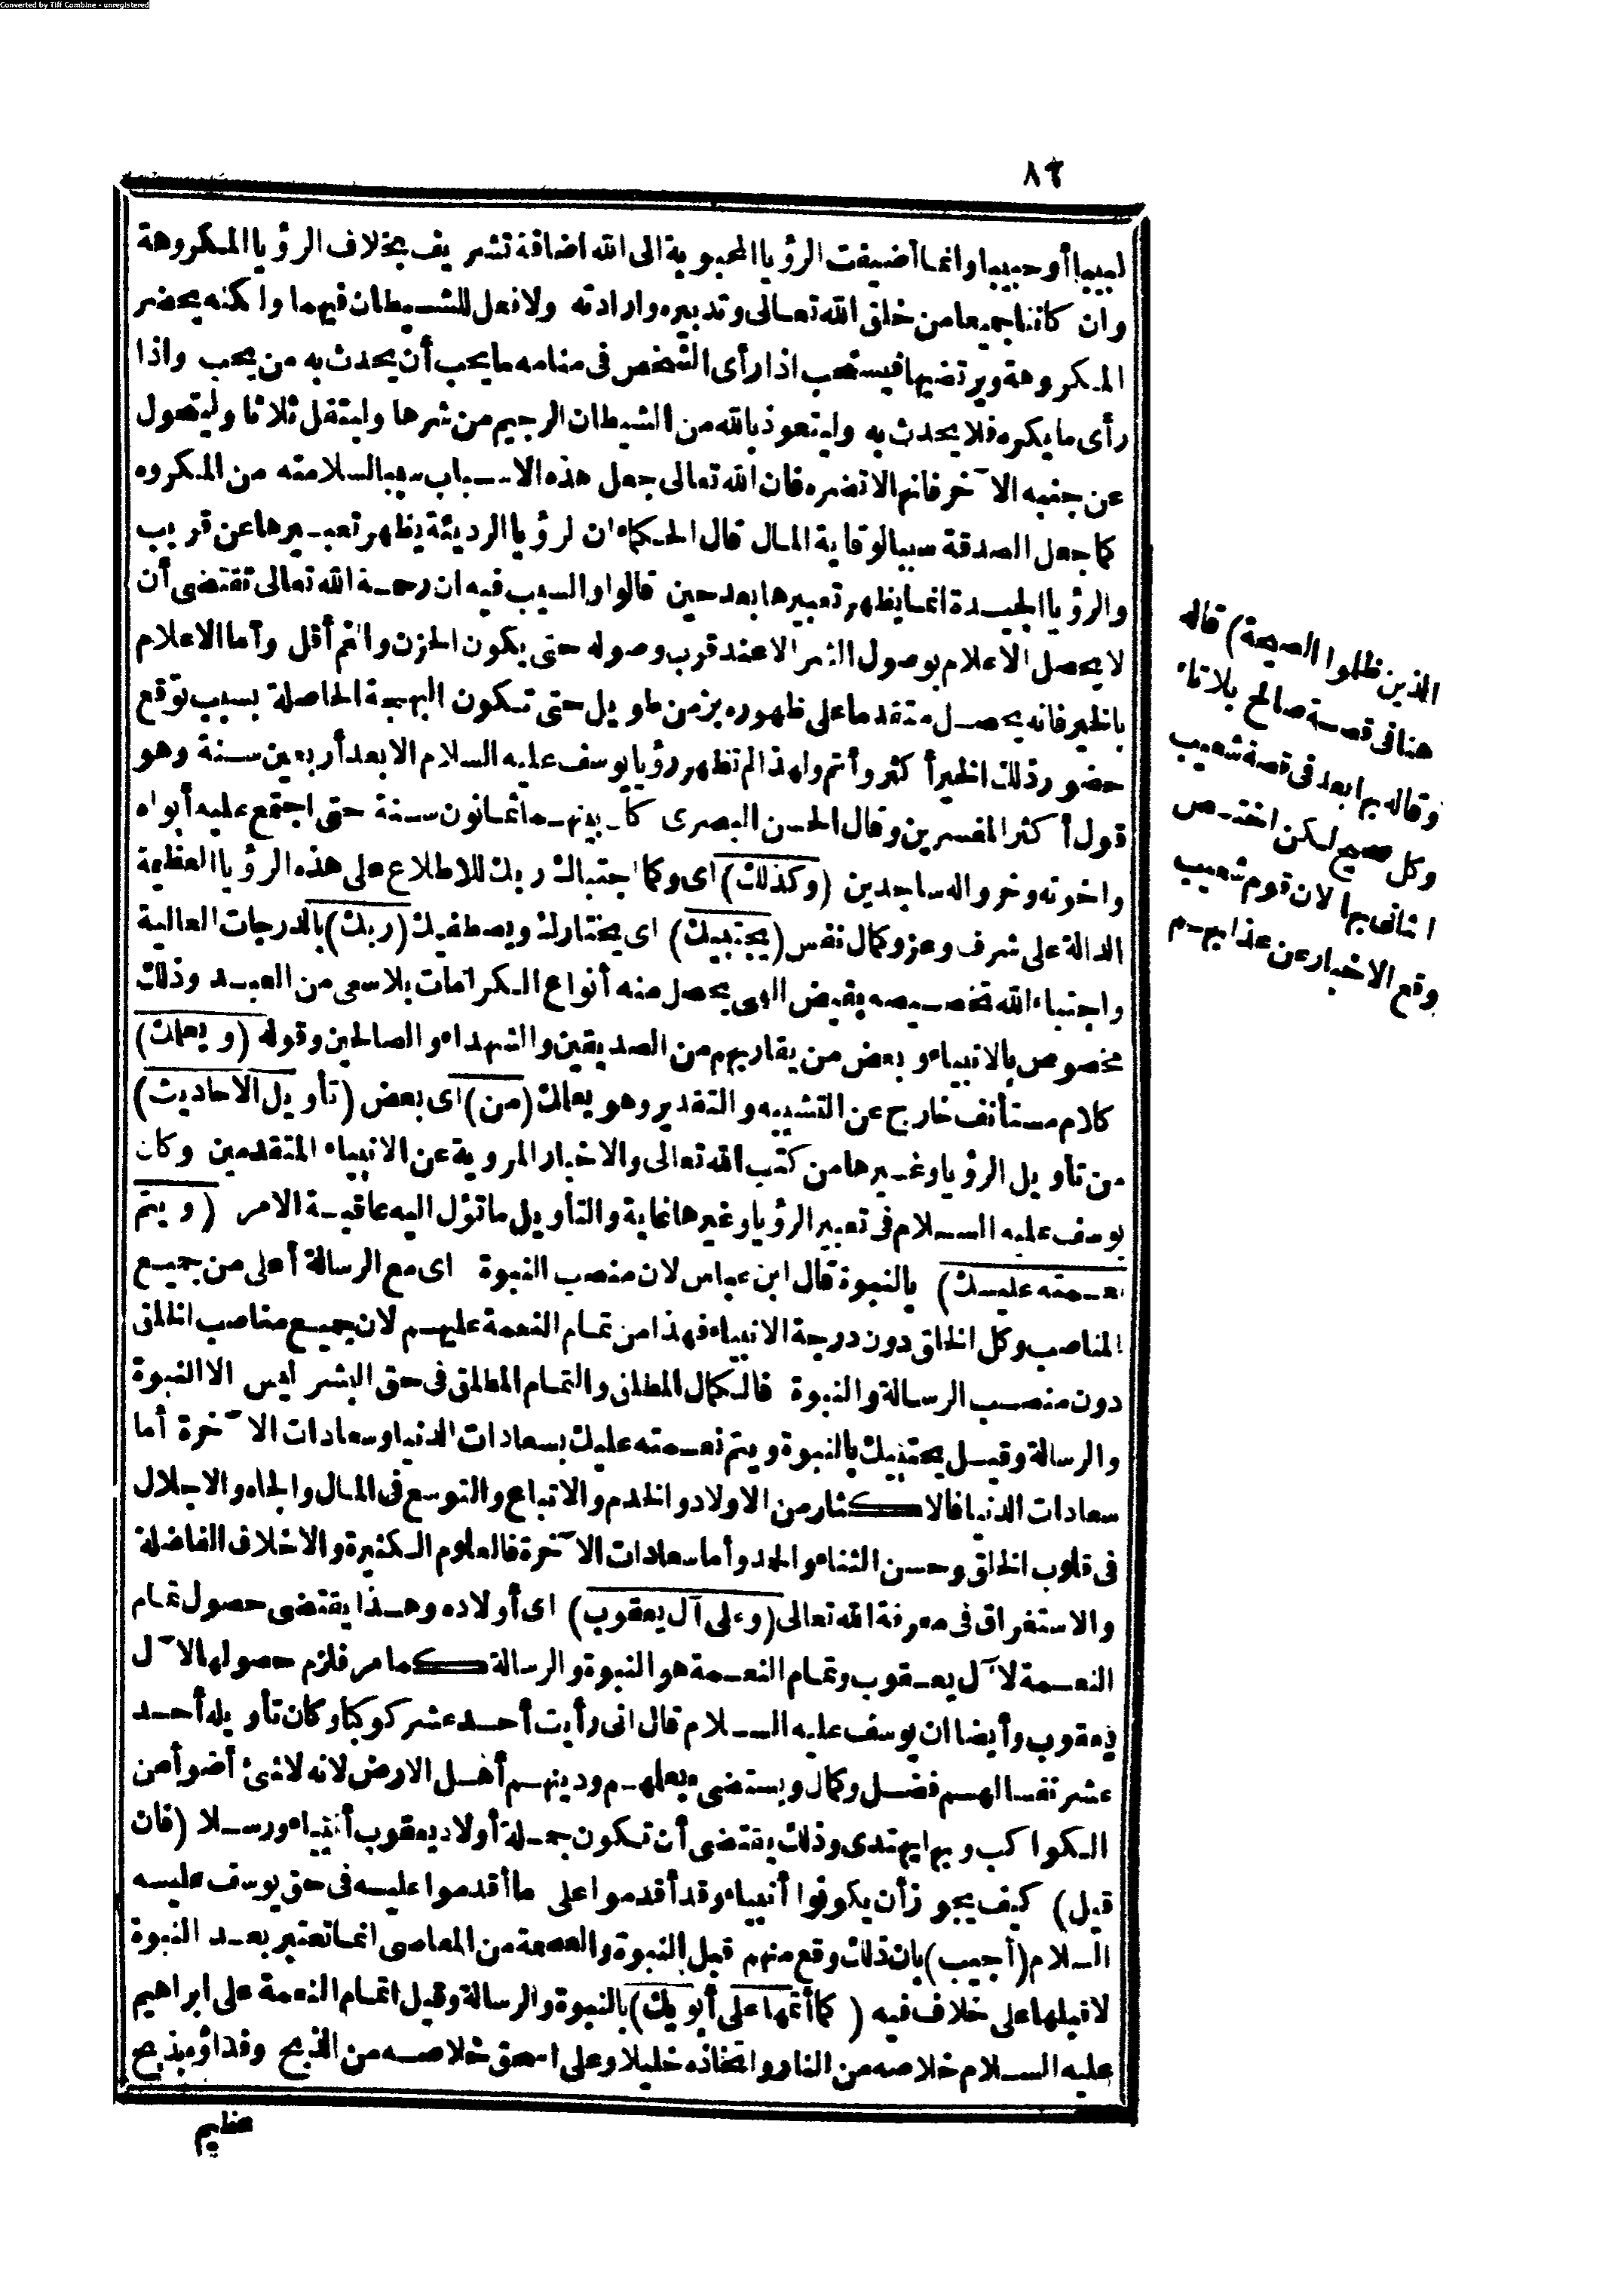 Converted by Tiff Combine - unregistered
٨٢
لبيبا أو حبيبا وانما أضيفت الرؤيا المحبوبة الى الله اضافة تشريف بخلاف الرؤيا المكروهة
وان كانتا جميعا من خلق الله تعالى وتدبيره وارادته ولا فعل للشيطان فيهما ولكنه يحضر
المكروهة ويرتضيها فيستحب اذا رأى الشخص فى منامه ما يحب أن يحدث به من يحب واذا
رأى ما يكره فلا يحدث به وليتعوذ بالله من الشيطان الرجيم من شرها وليتفل ثلاثا وليتحول
عن جنبه الآخر فانها لا تضره فان الله تعالى جعل هذه الاسباب سببا لسلامته من المكروه
كما جعل الصدقة سببا لوقاية المال قال الحكماء ان لرؤيا الرديئة يظهر تعبيرها عن قريب
والرؤيا الجيدة انما يظهر تعبيرها بعد حين قالوا والسبب فيه ان رحمة الله تعالى تقتضى أن
لا يحصل الاعلام بوصول الشر الا عند قرب وصوله حتى يكون الحزن والغم أقل وأما الاعلام
بالخير فانه يحصل متقدما على ظهوره بزمن طويل حتى تكون البهجة الحاصلة بسبب توقع
حضور ذلك الخير أكثر وأتم ولهذا لم تظهر رؤيا يوسف عليه السلام الا بعد أربعين سنة وهو
قول أكثر المفسرين وقال الحسن البصرى كان بينهما ثمانون سنة حتى اجتمع عليه أبواه
واخوته وخروا له ساجدين (وكذلك) اى وكما اجتباك ربك للاطلاع على هذه الرؤيا العظيمة
الدالة على شرف وعز وكمال نفس (يجتبيك) اى يختارك ويصطفيك (ربك) بالدرجات العالية
واجتباء الله تخصيصه بفيض الهى يحصل منه أنواع الكرامات بلا سعى من العبد وذلك
مخصوص بالانبياء وبعض من يقاربهم من الصديقين والشهداء والصالحين وقوله (ويعلمك)
كلام مستأنف خارج عن التشبيه والتقدير وهو يعلمك (من) اى بعض (تأويل الاحاديث)
من تأويل الرؤيا وغيرها من كتب الله تعالى والاخبار المروية عن الانبياء المتقدمين وكان
يوسف عليه السلام فى تعبير الرؤيا وغيرها غاية والتأويل ما تؤل اليه عاقبة الامر (ويتم
نعمته عليك) بالنبوة قال ابن عباس لان منصب النبوة اى مع الرسالة أعلى من جميع
المناصب وكل الخلق دون درجة الانبياء فهذا من تمام النعمة عليهم لان جميع مناصب الخلق
دون منصب الرسالة والنبوة فالكمال المطلق والتمام المطلق فى حق البشر ليس الا النبوة
والرسالة وقيل يجتبيك بالنبوة ويتم نعمته عليك بسعادات الدنيا وسعادات الآخرة أما
سعادات الدنيا فالاكثار من الاولاد والخدم والاتباع والتوسع فى المال والجاه والاجلال
فى قلوب الخلق وحسن الثناء والحمد وأما سعادات الآخرة فالعلوم الكثيرة والاخلاق الفاضلة
والاستغراق فى معرفة الله تعالى (وعلى آل يعقوب) اى أولاده وهذا يقتضى حصول تمام
النعمة لآل يعقوب وتمام النعمة هو النبوة والرسالة كما مر فلزم حصولها لآل
يعقوب وأيضا ان يوسف عليه السلام قال انى رأيت أحد عشر كوكبا وكان تأويله أحد
عشر نفسا لهم فضل وكمال ويستضىء بعلمهم ودينهم أهل الارض لانه لا شئ أضوأ من
الكواكب وبها يهتدى وذلك يقتضى أن تكون جملة أولاد يعقوب أنبياء ورسلا (فان
قيل) كيف يجوز أن يكونوا أنبياء وقد أقدموا على ما أقدموا عليه فى حق يوسف عليه
السلام (أجيب) بان ذلك وقع منهم قبل النبوة والعصمة من المعاصى انما تعتبر بعد النبوة
لا قبلها على خلاف فيه (كما أتمها على أبويك) بالنبوة والرسالة وقيل اتمام النعمة على ابراهيم
عليه السلام خلاصه من النار واتخاذه خليلا وعلى اسحق خلاصه من الذبح وفداؤه بذبح
عظيم
الذين ظلموا الصيحة) قاله
هنا فى قصة صالح بلا تاء
وقاله بها بعد فى قصة شعيب
وكل صحيح لكن اختص
الثانى بها لان قوم شعيب
وقع الاخبار عن عذابهم